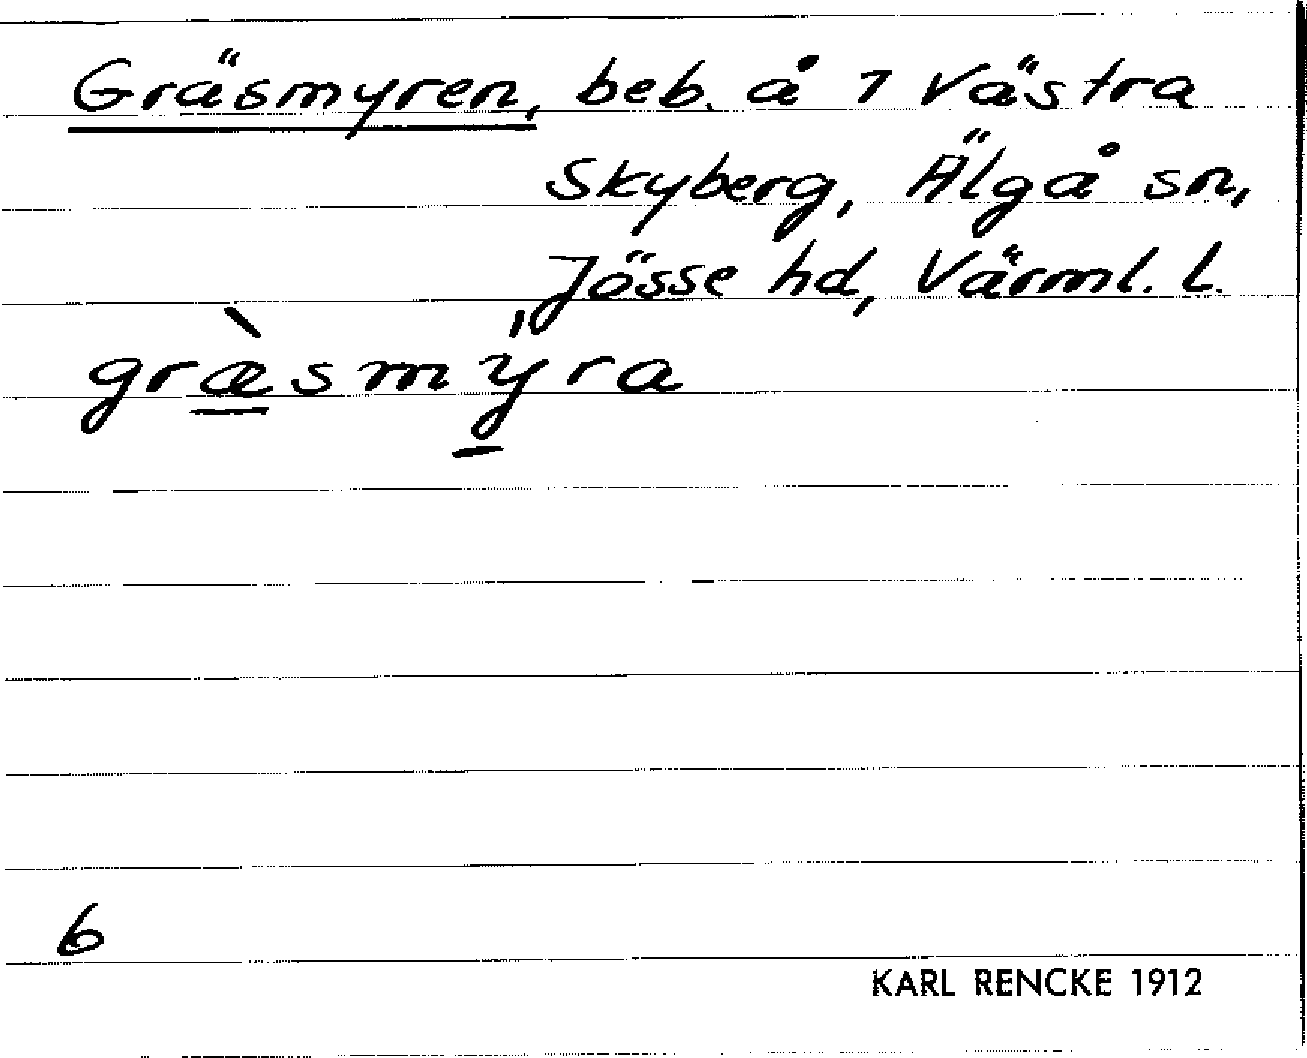 Gräsmyren, beb. å 7 Västra
Skyberg, Älgå sn,
Jösse hd, Värml. l.
græ̀smýra
6
KARL RENCKE 1912